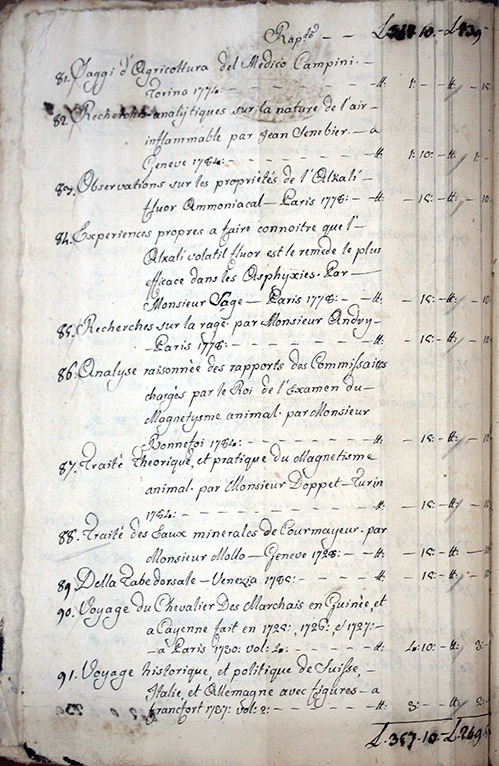 Rap.to - - L. 10.- L. 239-
81. Saggi d'Agricoltura del Medico Campini. -
Torino 1774: - - - - - - tt: 1: - tt: - 15
82. Recherches analÿtiques sur la nature de l'air -
inflammable par Jean Senebier. - a
Geneve 1784: - - - - - - tt: 1: 10: - tt: 1: -
83. Observations sur les propriétés de l'Alxali -
fluor Ammoniacal - Paris 1778: - - tt: - 15: - tt: - 10
84. Experiences propres a faire connoitre que l'-
Alxali volatil fluor est le remede le plus
efficace dans les Asphyxies. Par -
Monsieur Sage - Paris 1778: - - tt: - 15: - tt: - 10
85. Recherches sur la rage. par Monsieur Andry -
- Paris 1778: - - - - - - tt: - 15: - tt: - 10
86. Analyse raisonnée des rapports des Commissaires
chargés par le Roi de l'Examen du -
Magnetysme animal. par Monsieur
Bonnefoi 1784: - - - - - - tt: - 15: - tt: - 10
87. Traité Theorique, et pratique du Magnetisme
animal. par Monsieur Doppet - Turin
1784: - - - - - - - - tt: - 15: - tt: - 10
88. Traité des Eaux minerales de Courmayeur. par
Monsieur Mollo - Geneve 1728: - - tt: - 15: - tt: - 10
89. Della Tabe dorsale - Venezia 1785: - - tt: - 15: - tt: - 10
90. Voyage du Chevalier Des Marchais en Guinée, et
a Cayenne fait en 1725:, 1726:, et 1727: -
- a Paris 1730: vol: 4: - - - - tt: 4: 10: - tt: 3: -
91. Voyage historique, et politique de Suisse, -
Italie, et Allemagne avec figures - a
francfort 1737: vol: 2: - - - - tt: 3: - tt: 2: -
L. 357. 10. - L. 249